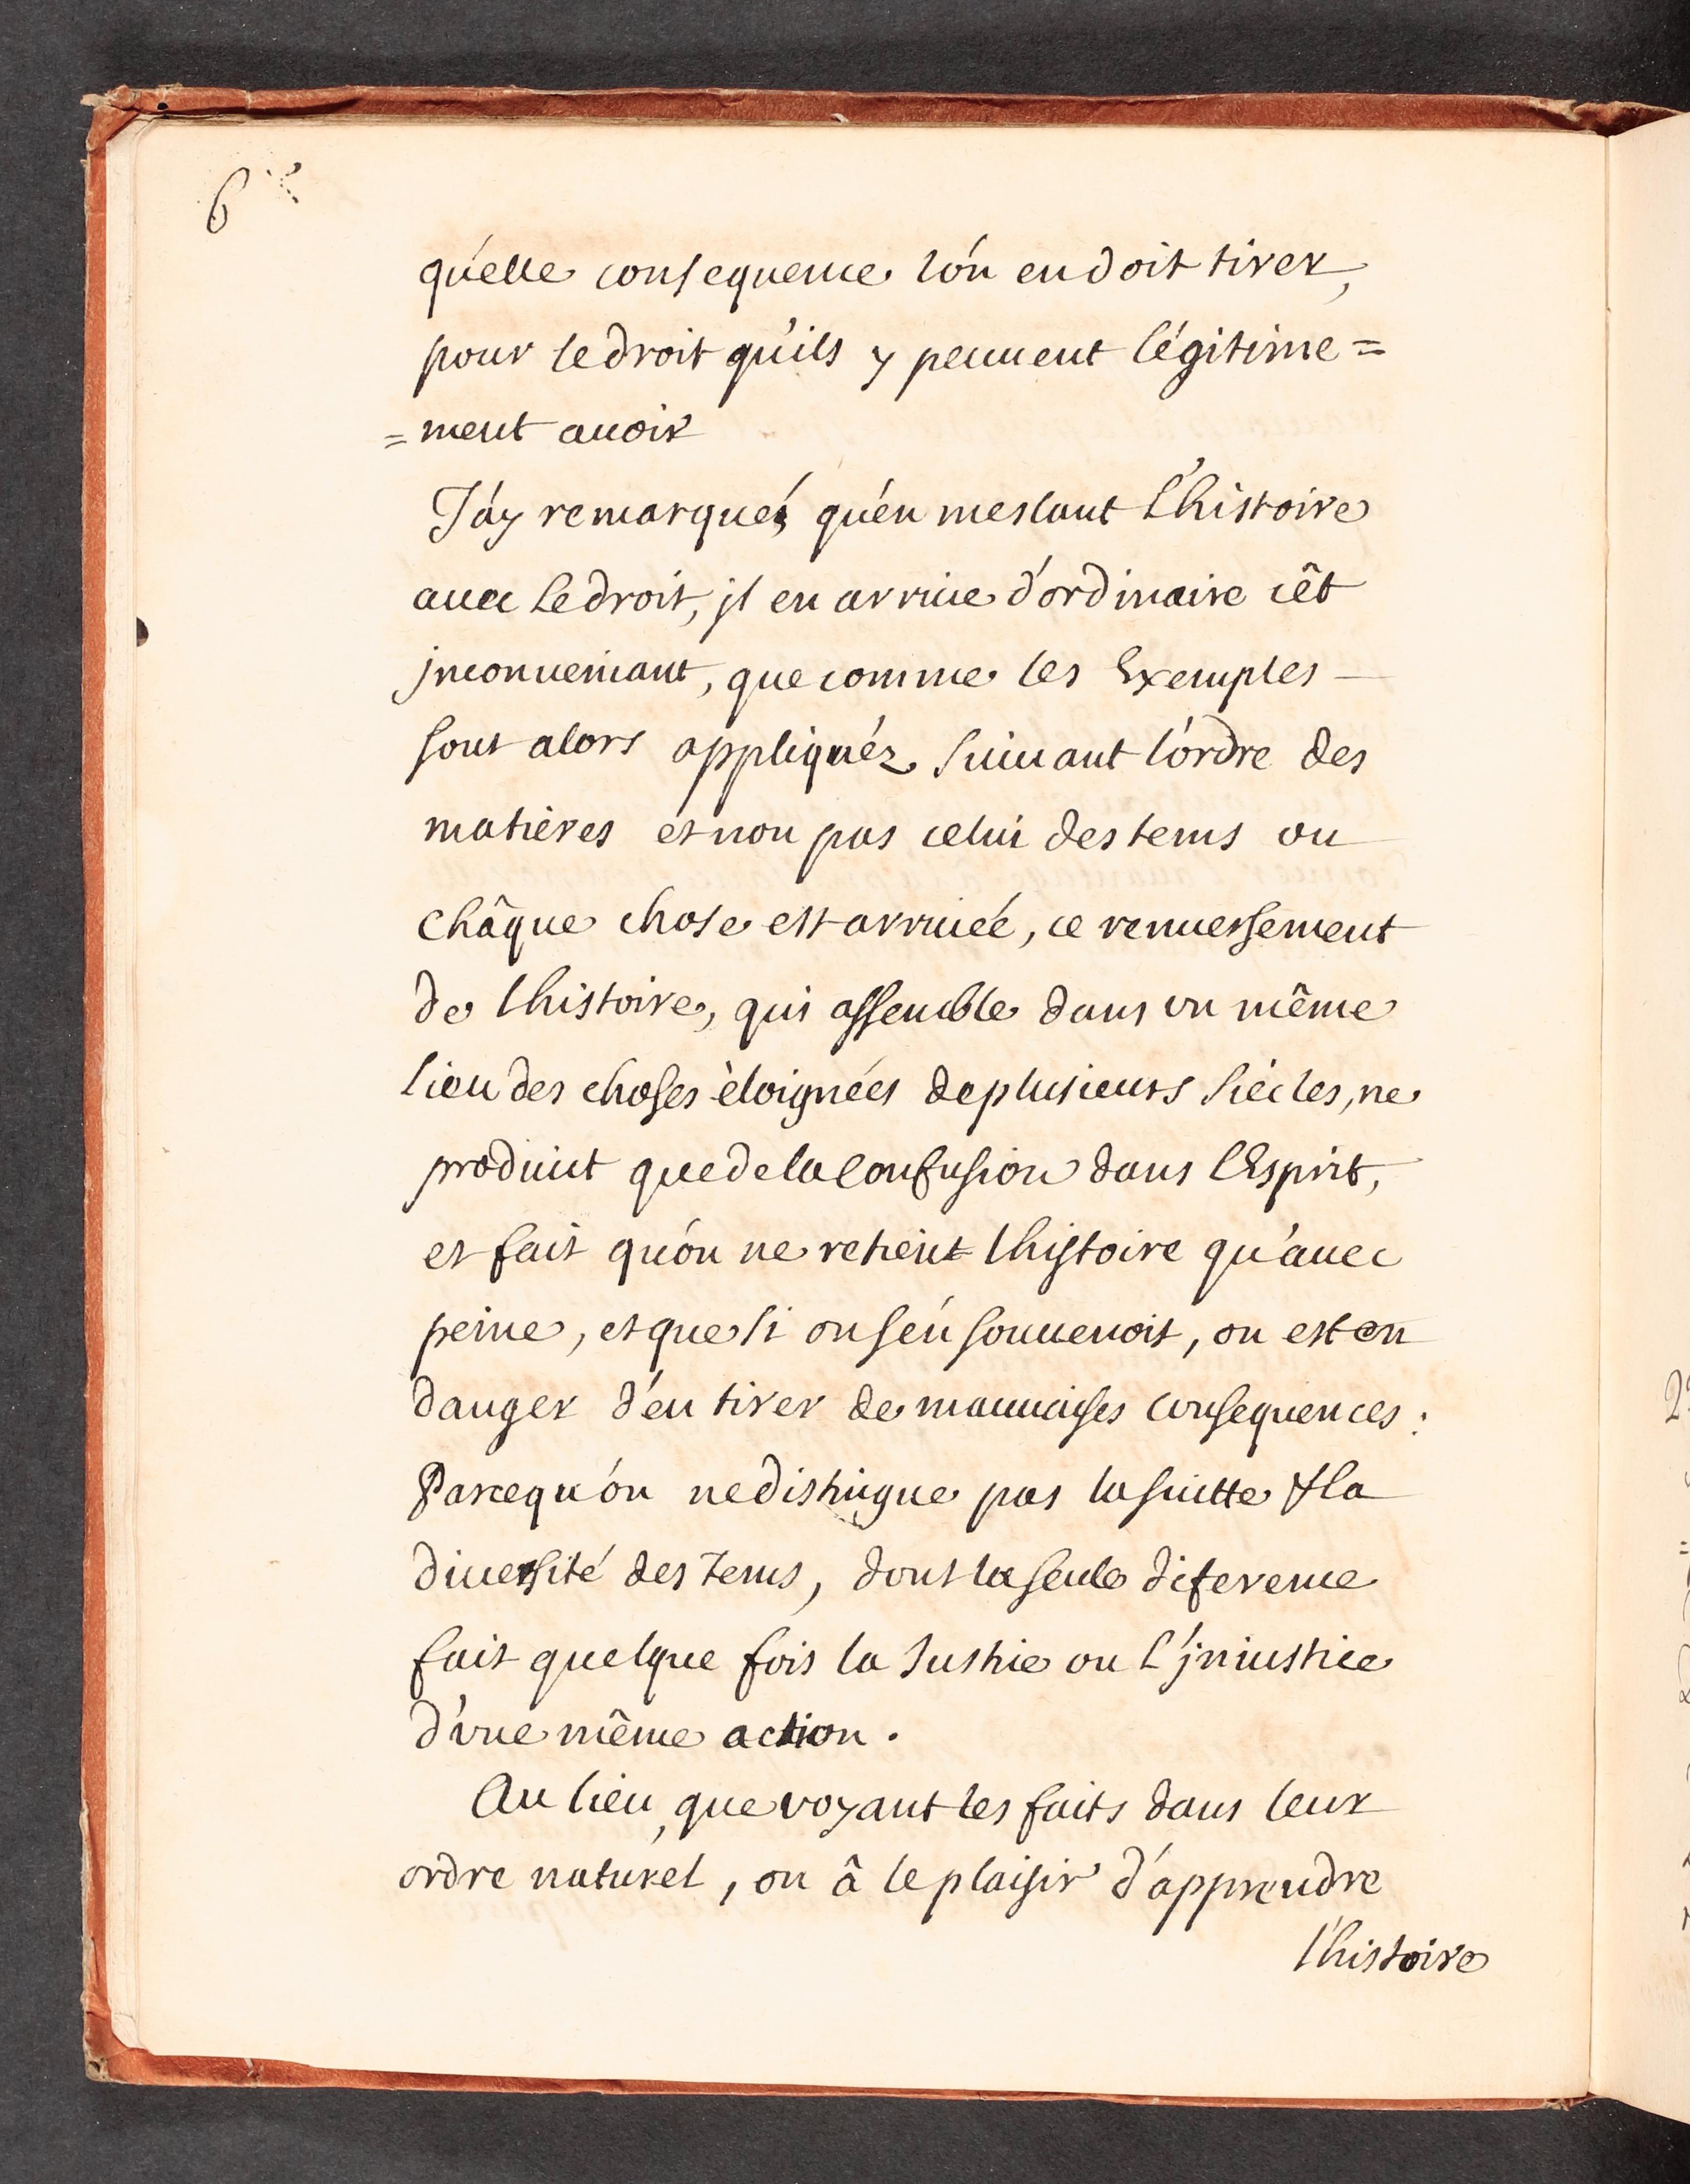 6
qu'elle consequence l'on en doit tirer,
pour le droit qu'ils y peuuent légitime=
=ment auoir
J'ay remarqué, qu'en meslant L'histoire
auec Le droit, jl en arriue d'ordinaire cêt
jnconueniant, que comme les Exemples
sont alors appliquéz suiuant l'ordre des
matières et non pas celui des tems ou
Châque chose est arriuée, ce renuersement
de lhistoire, qui assemble dans vn même
lieu des choses èloignées de plusieurs siécles, ne
produict que de la Confusion dans l'Esprit,
et fait qu'on ne retient lhistoire qu'auec
peine, et que si on s'en souuenoit, on est en
danger d'en tirer de mauuaises Consequences:
Parce qu'on ne distingue pas la suitte & la
diuersité des Tems, dont la seule diference
fait quelque fois la Justice ou L'jniustice
d'vne même action.
Au lieu, que voyant les faits dans leur
ordre naturel, on â le plaisir d'apprendre
l'histoire